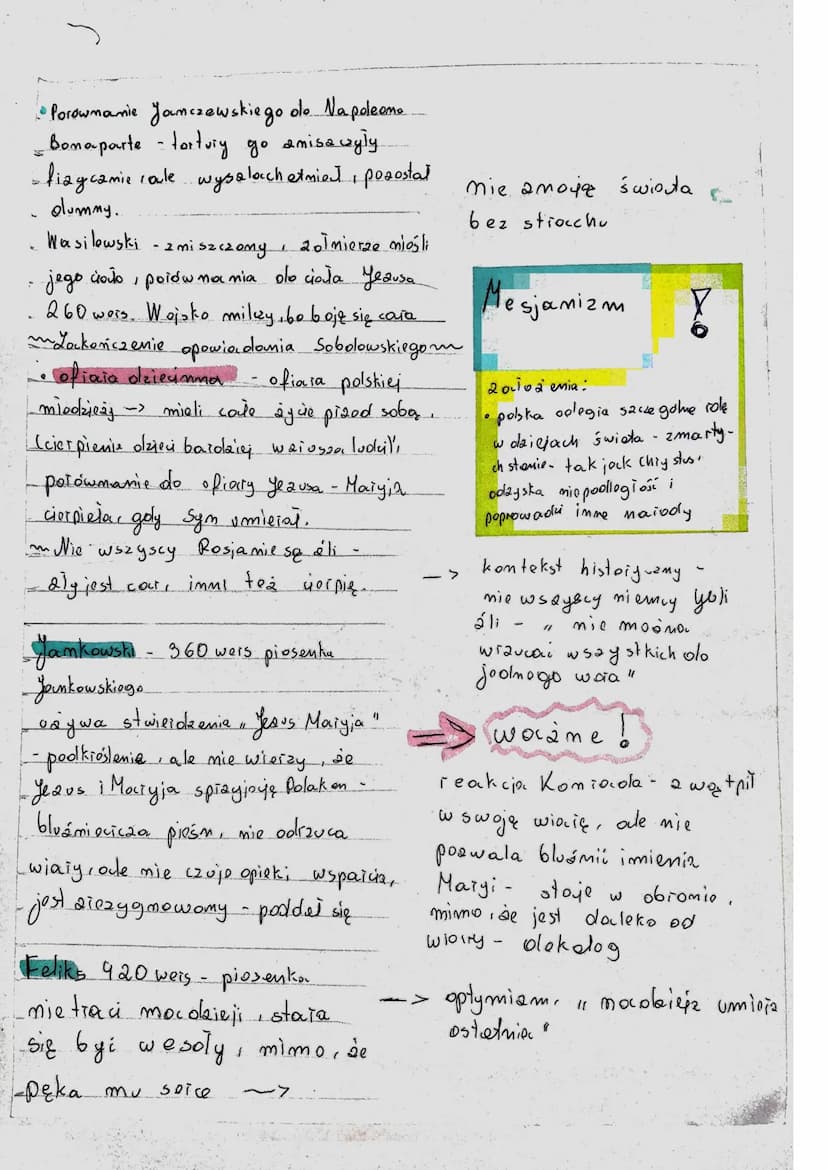 • Porównanie Janczewskiego do Napoleona
Bonaparte - tortury go zniszczyły
fizycznie, ale wyszlachetniał, pozostał
dumny.
Wasilewski - zniszczony, żołnierze nieśli
jego ciało, porównania do ciała Jezusa
260 wers. Wojsko milczy, bo boją się cara
~ Zakończenie opowiadania Sobolowskiego ~
• ofiara dziecinna - ofiara polskiej
młodzieży -> mieli całe życie przed sobą.
(cierpienia dzieci bardziej wzrusza ludzi),
porównanie do ofiary Jezusa - Maryja
cierpiała, gdy Syn umierał.
~ Nie wszyscy Rosjanie są źli -
zły jest car, inni też cierpią.
Jankowski - 360 wers piosenka
Jankowskiego
używa stwierdzenia "Jezus Maryja"
- podkreślenie, ale nie wierzy, że
Jezus i Maryja sprzyjają Polakom -
bluźniercza pieśń, nie odrzuca
wiary, ale nie czuje opieki, wsparcia,
jest zrezygnowany - poddał się
Feliks 420 wers - piosenka
nie traci nadzieji, stara
się być wesoły, mimo, że
pęka mu serce ~>
nie znają świata
bez strachu
Mesjanizm !
założenia:
• polska odegra szczególne role
w dziejach świata - zmarty-
ch stanie - tak jak Chrystus,
odzyska niepodległość i
poprowadzi inne narody
-> kontekst historyczny -
nie wszyscy niemcy byli
źli - "nie można
wrzucać wszystkich do
jednego wora"
ważne!
reakcja Konrada - zwątpił
w swoją wiarę, ale nie
pozwala bluźnić imienia
Maryi - staje w obronie,
mimo, że jest daleko od
wiary - dekalog
-> optymizm, "nadzieja umiera
ostatnia"